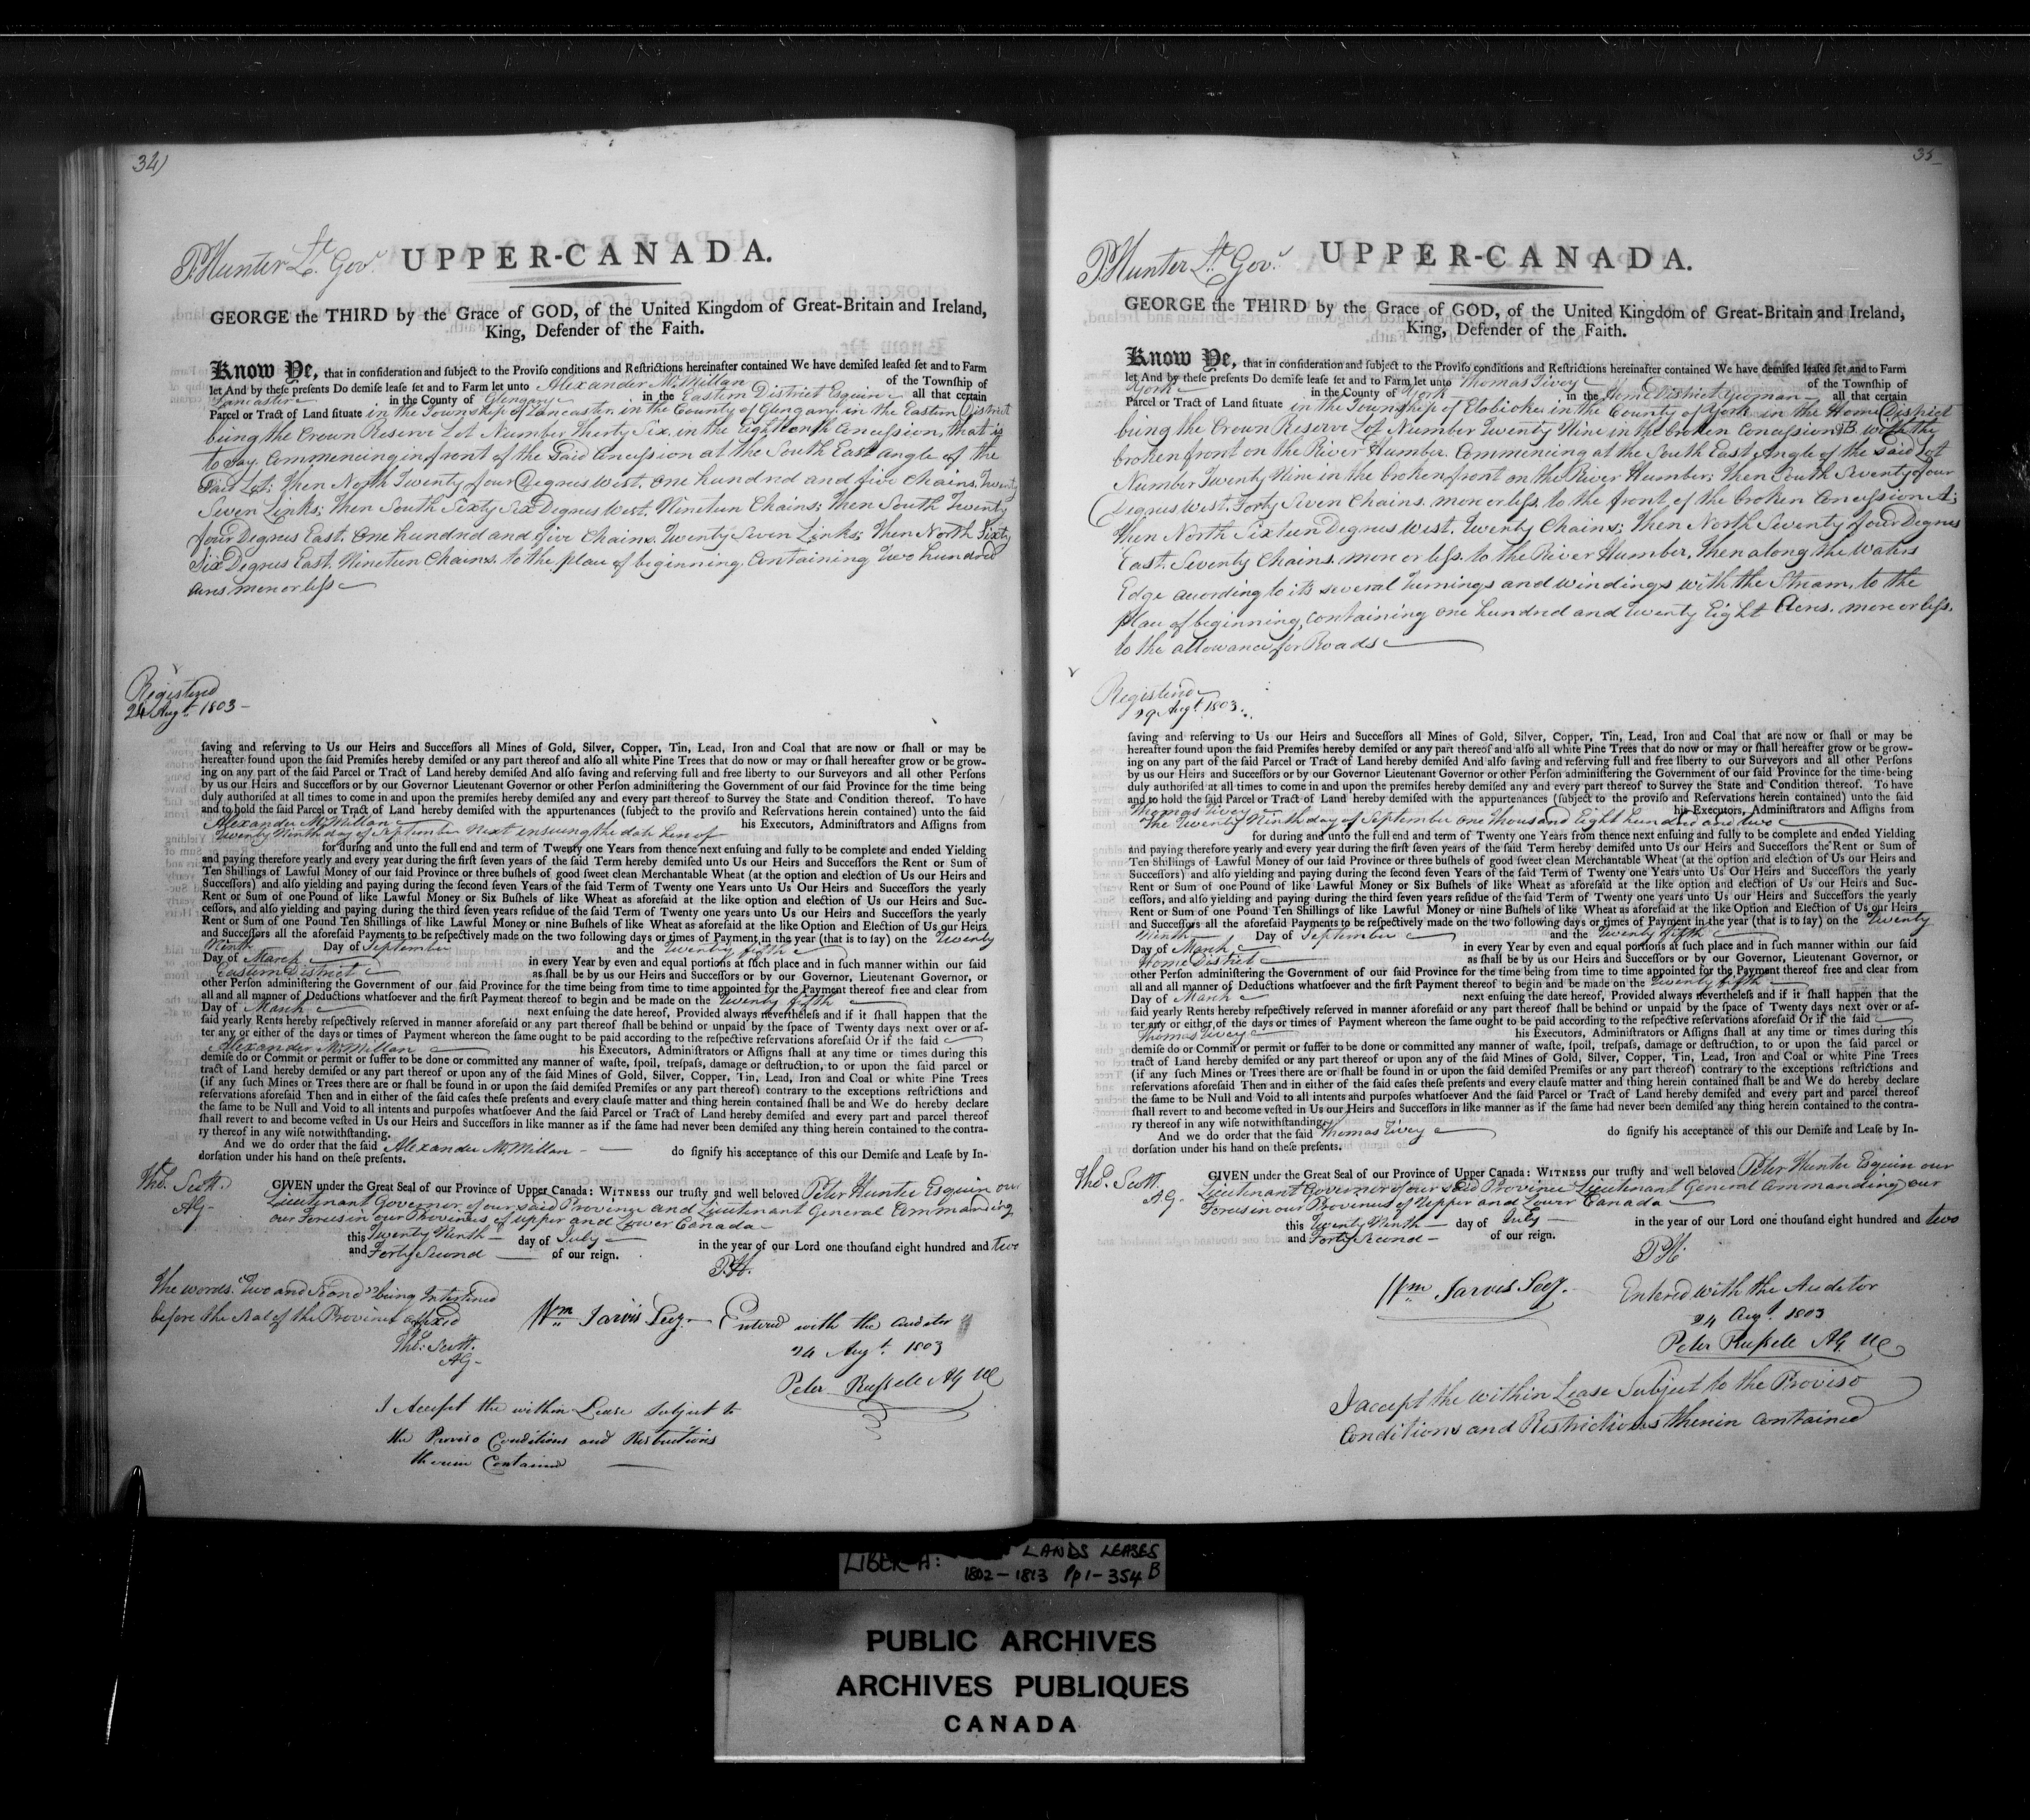 34)
P Hunter Lt. Gov.r UPPER-CANADA.
GEORGE the THIRD by the Grace of GOD, of the United Kingdom of Great-Britain and Ireland,
King, Defender of the Faith.
Know Ye, that in confideration and fubject to the Provifo conditions and Reftrictions hereinafter contained We have demifed leafed fet and to Farm
let And by thefe prefents Do demife leafe fet and to Farm let unto Alexander McMillan of the Townfhip of
Lancaster in the County of Glengary in the Eastern District Esquire all that certain
Parcel or Tract of Land fituate in the Township of Lancaster, in the County of Glengary, in the Eastern District
being the Crown Reserve Lot Number Thirty Six, in the Eighteenth Concession, that is
to say, Commencing in front of the said Concession at the South East angle of the
said Lot; Then North Twenty four Degrees West, one hundred and five Chains, Twenty
Seven Links; Then South Sixty Six Degrees West, Nineteen Chains; Then South Twenty
four Degrees East, One hundred and five Chains, Twenty Seven Links; Then North Sixty
Six Degrees East, Nineteen Chains, to the place of beginning, Containing Two hundred
acres more or less
Registered
24 Augt. 1803 -
faving and referving to Us our Heirs and Succeffors all Mines of Gold, Silver, Copper, Tin, Lead, Iron and Coal that are now or fhall or may be
hereafter found upon the faid Premifes hereby demifed or any part thereof and alfo all white Pine Trees that do now or may or fhall hereafter grow or be grow-
ing on any part of the faid Parcel or Tract of Land hereby demifed And alfo faving and referving full and free liberty to our Surveyors and all other Perfons
by us our Heirs and Succeffors or by our Governor Lieutenant Governor or other Perfon adminiftering the Government of our faid Province for the time being
duly authorifed at all times to come in and upon the premifes hereby demifed any and every part thereof to Survey the State and Condition thereof. To have
and to hold the faid Parcel or Tract of Land hereby demifed with the appurtenances (fubject to the provifo and Refervations herein contained) unto the faid
Alexander McMillan his Executors, Adminiftrators and Affigns from
Twenty Ninth day of September next ensuing the date hereof
for during and unto the full end and term of Twenty one Years from thence next enfuing and fully to be complete and ended Yielding
and paying therefore yearly and every year during the firft feven years of the faid Term hereby demifed unto Us our Heirs and Succeffors the Rent or Sum of
Ten Shillings of Lawful Money of our faid Province or three bufhels of good fweet clean Merchantable Wheat (at the option and election of Us our Heirs and
Succeffors) and alfo yielding and paying during the fecond feven Years of the faid Term of Twenty one Years unto Us Our Heirs and Succeffors the yearly
Rent or Sum of one Pound of like Lawful Money or Six Bufhels of like Wheat as aforefaid at the like option and election of Us our Heirs and Suc-
ceffors, and alfo yielding and paying during the third feven years refidue of the faid Term of Twenty one years unto Us our Heirs and Succeffors the yearly
Rent or Sum of one Pound Ten Shillings of like Lawful Money or nine Bufhels of like Wheat as aforefaid at the like Option and Election of Us our Heirs
and Succeffors all the aforefaid Payments to be refpectively made on the two following days or times of Payment in the year (that is to fay) on the Twenty
Ninth Day of September and the Twenty fifth
Day of March in every Year by even and equal portions at fuch place and in fuch manner within our faid
Eastern District as fhall be by us our Heirs and Succeffors or by our Governor, Lieutenant Governor, or
other Perfon adminiftering the Government of our faid Province for the time being from time to time appointed for the Payment thereof free and clear from
all and all manner of Deductions whatfoever and the firft Payment thereof to begin and be made on the Twenty fifth
Day of March next enfuing the date hereof, Provided always neverthelefs and if it fhall happen that the
faid yearly Rents hereby refpectively referved in manner aforefaid or any part thereof fhall be behind or unpaid by the fpace of Twenty days next over or af-
ter any or either of the days or times of Payment whereon the fame ought to be paid according to the refpective refervations aforefaid Or if the faid
Alexander McMillan his Executors, Adminiftrators or Affigns fhall at any time or times during this
demife do or Commit or permit or fuffer to be done or committed any manner of wafte, fpoil, trefpafs, damage or deftruction, to or upon the faid parcel or
tract of Land hereby demifed or any part thereof or upon any of the faid Mines of Gold, Silver, Copper, Tin, Lead, Iron and Coal or white Pine Trees
(if any fuch Mines or Trees there are or fhall be found in or upon the faid demifed Premifes or any part thereof) contrary to the exceptions reftrictions and
refervations aforefaid Then and in either of the faid cafes thefe prefents and every claufe matter and thing herein contained fhall be and We do hereby declare
the fame to be Null and Void to all intents and purpofes whatfoever And the faid Parcel or Tract of Land hereby demifed and every part and parcel thereof
fhall revert to and become vefted in Us our Heirs and Succeffors in like manner as if the fame had never been demifed any thing herein contained to the contra-
ry thereof in any wife notwithftanding.
And we do order that the faid Alexander McMillan do fignify his acceptance of this our Demife and Leafe by In-
dorfation under his hand on thefe prefents.
Tho. Scott.
AG-
GIVEN under the Great Seal of our Province of Upper Canada: WITNESS our trufty and well beloved Peter Hunter Esquire our
Lieutenant Governor of our said Province and Lieutenant General Commanding
our Forces in our Provinces of Upper and Lower Canada
this Twenty Ninth day of July in the year of our Lord one thoufand eight hundred and two
and Forty Second of our reign.
P.H.
The words "Two and Second" being Interlined
before the Seal of the Province affixed
Tho: Scott.
AG-
Wm Jarvis Secy. Entered with the Auditor
24 Augt. 1803
Peter Russell AG UC
I Accept the within Lease Subject to
the Proviso Conditions and Restrictions
therein Contained
35
P Hunter Lt. Gov.r UPPER-CANADA.
GEORGE the THIRD by the Grace of GOD, of the United Kingdom of Great-Britain and Ireland,
King, Defender of the Faith.
Know Ye, that in confideration and fubject to the Provifo conditions and Reftrictions hereinafter contained We have demifed leafed fet and to Farm
let And by thefe prefents Do demife leafe fet and to Farm let unto Thomas Tivey of the Townfhip of
York in the County of York in the Home District Yeoman all that certain
Parcel or Tract of Land fituate in the Township of Etobicoke in the County of York in the Home District
being the Crown Reserve Lot Number Twenty Nine in the broken Concession B. with the
broken front on the River Humber. Commencing at the South East Angle of the said Lot
Number Twenty Nine in the broken front on the River Humber; Then South Seventy four
Degrees West, Forty Seven Chains, more or less, to the front of the broken Concession A;
Then North Sixteen Degrees West, Twenty Chains; Then North Seventy four Degrees
East, Seventy Chains, more or less, to the River Humber, Then along the Waters
Edge according to its several Turnings and windings with the Stream, to the
place of beginning, containing one hundred and twenty Eight Acres, more or less,
to the allowance for Roads
Registered
29 Augt. 1803.
faving and referving to Us our Heirs and Succeffors all Mines of Gold, Silver, Copper, Tin, Lead, Iron and Coal that are now or fhall or may be
hereafter found upon the faid Premifes hereby demifed or any part thereof and alfo all white Pine Trees that do now or may or fhall hereafter grow or be grow-
ing on any part of the faid Parcel or Tract of Land hereby demifed And alfo faving and referving full and free liberty to our Surveyors and all other Perfons
by us our Heirs and Succeffors or by our Governor Lieutenant Governor or other Perfon adminiftering the Government of our faid Province for the time being
duly authorifed at all times to come in and upon the premifes hereby demifed any and every part thereof to Survey the State and Condition thereof. To have
and to hold the faid Parcel or Tract of Land hereby demifed with the appurtenances (fubject to the provifo and Refervations herein contained) unto the faid
Thomas Tivey his Executors, Adminiftrators and Affigns from
The Twenty Ninth day of September One thousand Eight hundred and two
for during and unto the full end and term of Twenty one Years from thence next enfuing and fully to be complete and ended Yielding
and paying therefore yearly and every year during the firft feven years of the faid Term hereby demifed unto Us our Heirs and Succeffors the Rent or Sum of
Ten Shillings of Lawful Money of our faid Province or three bufhels of good fweet clean Merchantable Wheat (at the option and election of Us our Heirs and
Succeffors) and alfo yielding and paying during the fecond feven Years of the faid Term of Twenty one Years unto Us Our Heirs and Succeffors the yearly
Rent or Sum of one Pound of like Lawful Money or Six Bufhels of like Wheat as aforefaid at the like option and election of Us our Heirs and Suc-
ceffors, and alfo yielding and paying during the third feven years refidue of the faid Term of Twenty one years unto Us our Heirs and Succeffors the yearly
Rent or Sum of one Pound Ten Shillings of like Lawful Money or nine Bufhels of like Wheat as aforefaid at the like Option and Election of Us our Heirs
and Succeffors all the aforefaid Payments to be refpectively made on the two following days or times of Payment in the year (that is to fay) on the Twenty
Ninth Day of September and the Twenty fifth
Day of March in every Year by even and equal portions at fuch place and in fuch manner within our faid
Home District as fhall be by us our Heirs and Succeffors or by our Governor, Lieutenant Governor, or
other Perfon adminiftering the Government of our faid Province for the time being from time to time appointed for the Payment thereof free and clear from
all and all manner of Deductions whatfoever and the firft Payment thereof to begin and be made on the Twenty fifth
Day of March next enfuing the date hereof, Provided always neverthelefs and if it fhall happen that the
faid yearly Rents hereby refpectively referved in manner aforefaid or any part thereof fhall be behind or unpaid by the fpace of Twenty days next over or af-
ter any or either of the days or times of Payment whereon the fame ought to be paid according to the refpective refervations aforefaid Or if the faid
Thomas Tivey his Executors, Adminiftrators or Affigns fhall at any time or times during this
demife do or Commit or permit or fuffer to be done or committed any manner of wafte, fpoil, trefpafs, damage or deftruction, to or upon the faid parcel or
tract of Land hereby demifed or any part thereof or upon any of the faid Mines of Gold, Silver, Copper, Tin, Lead, Iron and Coal or white Pine Trees
(if any fuch Mines or Trees there are or fhall be found in or upon the faid demifed Premifes or any part thereof) contrary to the exceptions reftrictions and
refervations aforefaid Then and in either of the faid cafes thefe prefents and every claufe matter and thing herein contained fhall be and We do hereby declare
the fame to be Null and Void to all intents and purpofes whatfoever And the faid Parcel or Tract of Land hereby demifed and every part and parcel thereof
fhall revert to and become vefted in Us our Heirs and Succeffors in like manner as if the fame had never been demifed any thing herein contained to the contra-
ry thereof in any wife notwithftanding.
And we do order that the faid Thomas Tivey do fignify his acceptance of this our Demife and Leafe by In-
dorfation under his hand on thefe prefents.
Tho. Scott.
AG-
GIVEN under the Great Seal of our Province of Upper Canada: WITNESS our trufty and well beloved Peter Hunter Esquire our
Lieutenant Governor of our said Province Lieutenant General Commanding our
Forces in our Provinces of Upper and Lower Canada
this Twenty Ninth day of July in the year of our Lord one thoufand eight hundred and two
and Forty Second of our reign.
P.H.
Wm Jarvis Secy. Entered with the Auditor
24 Augt. 1803
Peter Russell AG UC
I accept the within Lease Subject to the Proviso
Conditions and Restrictions therein contained
LIBER A: LANDS LEASES
1802-1813 Pp 1-354 B
PUBLIC ARCHIVES
ARCHIVES PUBLIQUES
CANADA